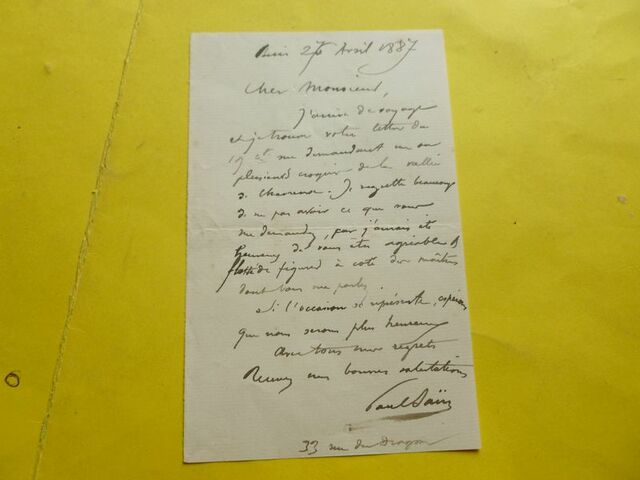 Paris 27 Avril 1887
Cher Monsieur,
J'arrive de voyage
et je trouve votre lettre du
19 ct me demandant un ou
plusieurs croquis de la vallée
de Chevreuse. Je regrette beaucoup
de ne pas avoir ce que vous
me demandez, car j'aurais été
heureux de vous être agréable &
flatté de figurer à côté des maîtres
dont vous me parlez.
Si l'occasion se représente, espérons
que nous serons plus heureux
Avec tous mes regrets
Recevez mes bonnes salutations
Paul Saïn
33 rue du Dragon